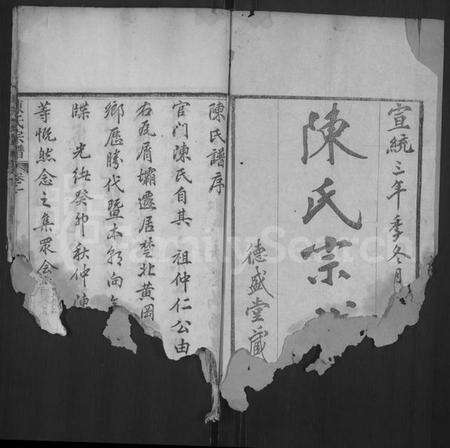 宣統三年季冬月
陳氏宗
德盛堂藏
陳氏譜序
官門陳氏自其 祖仲仁公由
右瓦屑壩遷居楚北黃岡
鄉歷勝代暨本朝向
牒 光緒癸卯秋仲
等慨然念之集眾
陳氏宗譜 卷之
FamilySearch